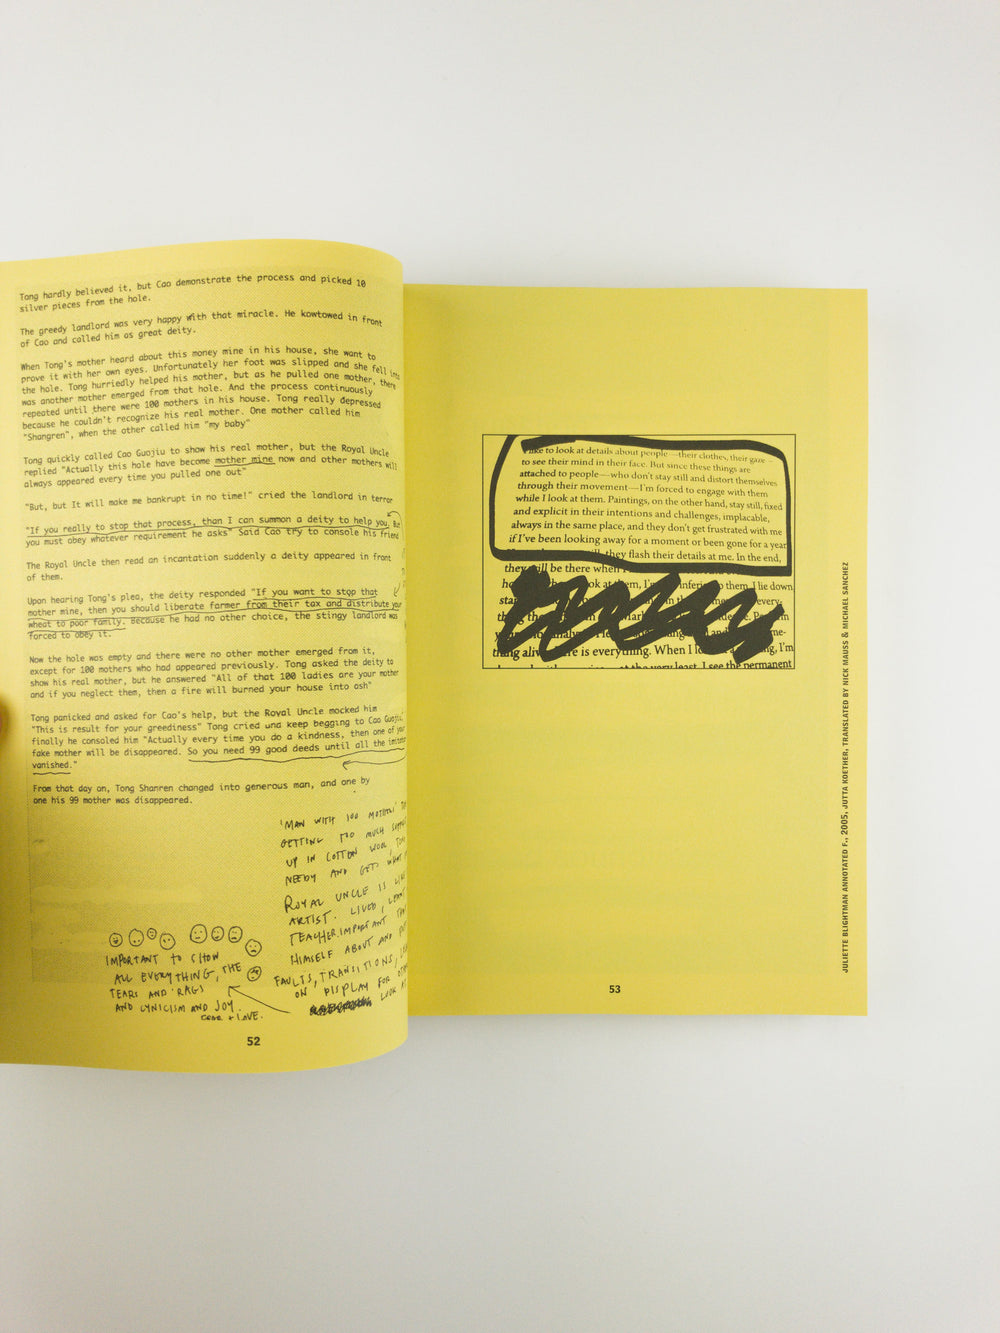 Tong hardly believed it, but Cao demonstrate the process and picked 10
silver pieces from the hole.
The greedy landlord was very happy with that miracle. He kowtowed in front
of Cao and called him as great deity.
When Tong's mother heard about this money mine in his house, she want to
prove it with her own eyes. Unfortunately her foot was slipped and she fell into
the hole. Tong hurriedly helped his mother, but as he pulled one mother, there
was another mother emerged from that hole. And the process continuously
repeated until there were 100 mothers in his house. Tong really depressed
because he couldn't recognize his real mother. One mother called him
"Shangren", when the other called him "my baby"
Tong quickly called Cao Guojiu to show his real mother, but the Royal Uncle
replied "Actually this hole have become mother mine now and other mothers will
always appeared every time you pulled one out"
"But, but It will make me bankrupt in no time!" cried the landlord in terror
"If you really to stop that process, than I can summon a deity to help you. But
you must obey whatever requirement he asks" Said Cao try to console his friend
The Royal Uncle then read an incantation suddenly a deity appeared in front
of them.
Upon hearing Tong's plea, the deity responded "If you want to stop that
mother mine, then you should liberate farmer from their tax and distribute your
wheat to poor family. Because he had no other choice, the stingy landlord was
forced to obey it.
Now the hole was empty and there were no other mother emerged from it,
except for 100 mothers who had appeared previously. Tong asked the deity to
show his real mother, but he answered "All of that 100 ladies are your mother
and if you neglect them, then a fire will burned your house into ash"
Tong panicked and asked for Cao's help, but the Royal Uncle mocked him
"This is result for your greediness" Tong cried and keep begging to Cao Guojiu,
finally he consoled him "Actually every time you do a kindness, then one of your
fake mother will be disappeared. So you need 99 good deeds until all the imitator
vanished."
From that day on, Tong Shanren changed into generous man, and one by
one his 99 mother was disappeared.
'MAN WITH 100 MOTHERS'
GETTING TOO MUCH
UP IN COTTON WOOL,
NEEDY AND GETS WHAT
ROYAL UNCLE IS LIKE
ARTIST. LIVED,
TEACHER. IMPORTANT
HIMSELF ABOUT AND
FAULTS, TRANSITIONS,
ON DISPLAY FOR
LOOK AT
IMPORTANT TO SHOW
ALL EVERYTHING, THE
TEARS AND RAGS
AND CYNICISM AND JOY.
+ LOVE.
52
I like to look at details about people—their clothes, their gaze
to see their mind in their face. But since these things are
attached to people—who don't stay still and distort themselves
through their movement—I'm forced to engage with them
while I look at them. Paintings, on the other hand, stay still, fixed
and explicit in their intentions and challenges, implacable,
always in the same place, and they don't get frustrated with me
if I've been looking away for a moment or been gone for a year
they flash their details at me. In the end,
they will be there when
look at them, I'm inferior to them. I lie down
every-
thing alive there is everything. When I I'm
at the very least, I see the permanent
53
JULIETTE BLIGHTMAN ANNOTATED F., 2005, JUTTA KOETHER, TRANSLATED BY NICK MAUSS & MICHAEL SANCHEZ